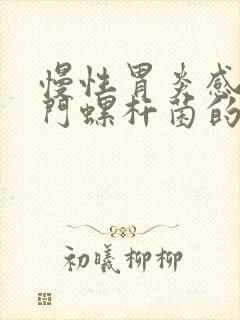 慢性胃炎感
门螺杆菌的
初曦柳柳